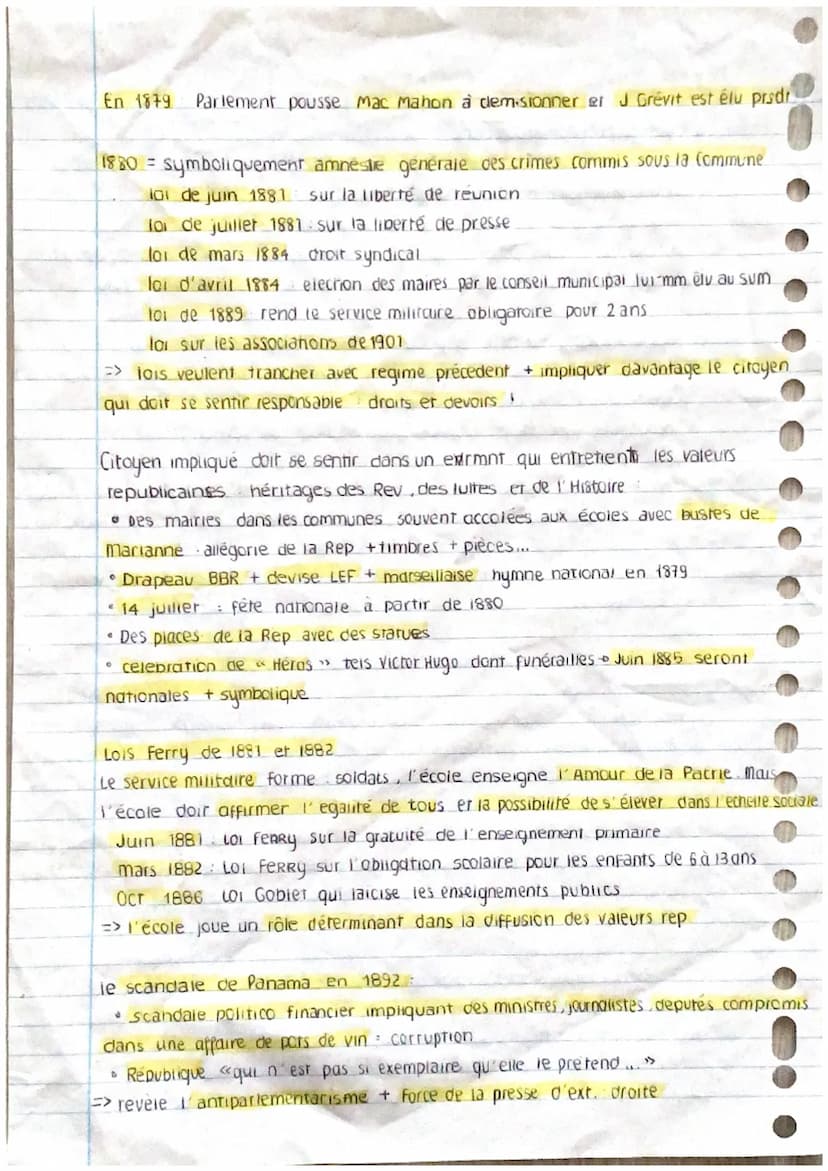 En 1879 Parlement pousse Mac Mahon à demisionner et J Grévit est élu prsdt
1880 = symboliquement amnestie générale des crimes commis sous la Commune
loi de juin 1881 sur la liberté de réunion
loi de juillet 1881 : sur la liberté de presse
loi de mars 1884 droit syndical
loi d'avril 1884 election des maires par le conseil municipal lui-mm élu au sum
loi de 1889 rend le service militaire obligatoire pour 2 ans
loi sur les associations de 1901
=> lois veulent trancher avec regime précedent + impliquer davantage le citoyen
qui doit se sentir responsable : droits et devoirs !
Citoyen impliqué doit se sentir dans un exrmnt qui entretient les valeurs
republicaines héritages des Rev, des luttes et de l'Histoire :
• Des mairies dans les communes souvent accolées aux écoles avec bustes de
Marianne . allégorie de la Rep + timbres + pièces...
• Drapeau BBR + devise LEF + marseillaise hymne national en 1879
• 14 juillet : fête nationale à partir de 1880
• Des places de la Rep avec des statues
• celebration de « Héros » tels Victor Hugo dont funérailles Juin 1885 seront
nationales + symbolique
Lois Ferry de 1881 et 1882
Le service militaire forme soldats, l'école enseigne l'Amour de la Patrie. Mais
l'école doit affirmer l'egalité de tous et la possibilité de s'élever dans l'echelle sociale
Juin 1881 : Loi FERRY sur la gratuité de l'enseignement primaire
mars 1882 : Loi FERRY sur l'obligation scolaire pour les enfants de 6 à 13 ans
Oct 1886 Loi Goblet qui laicise les enseignements publics
=> l'école joue un rôle déterminant dans la diffusion des valeurs rep
le scandale de Panama en 1892 :
• scandale politico financier impliquant des ministres, journalistes, deputés compromis
dans une affaire de pots de vin = corruption
• République « qui n'est pas si exemplaire qu'elle le prétend ... »
=> revèle l'antiparlementarisme + Force de la presse d'ext. droite